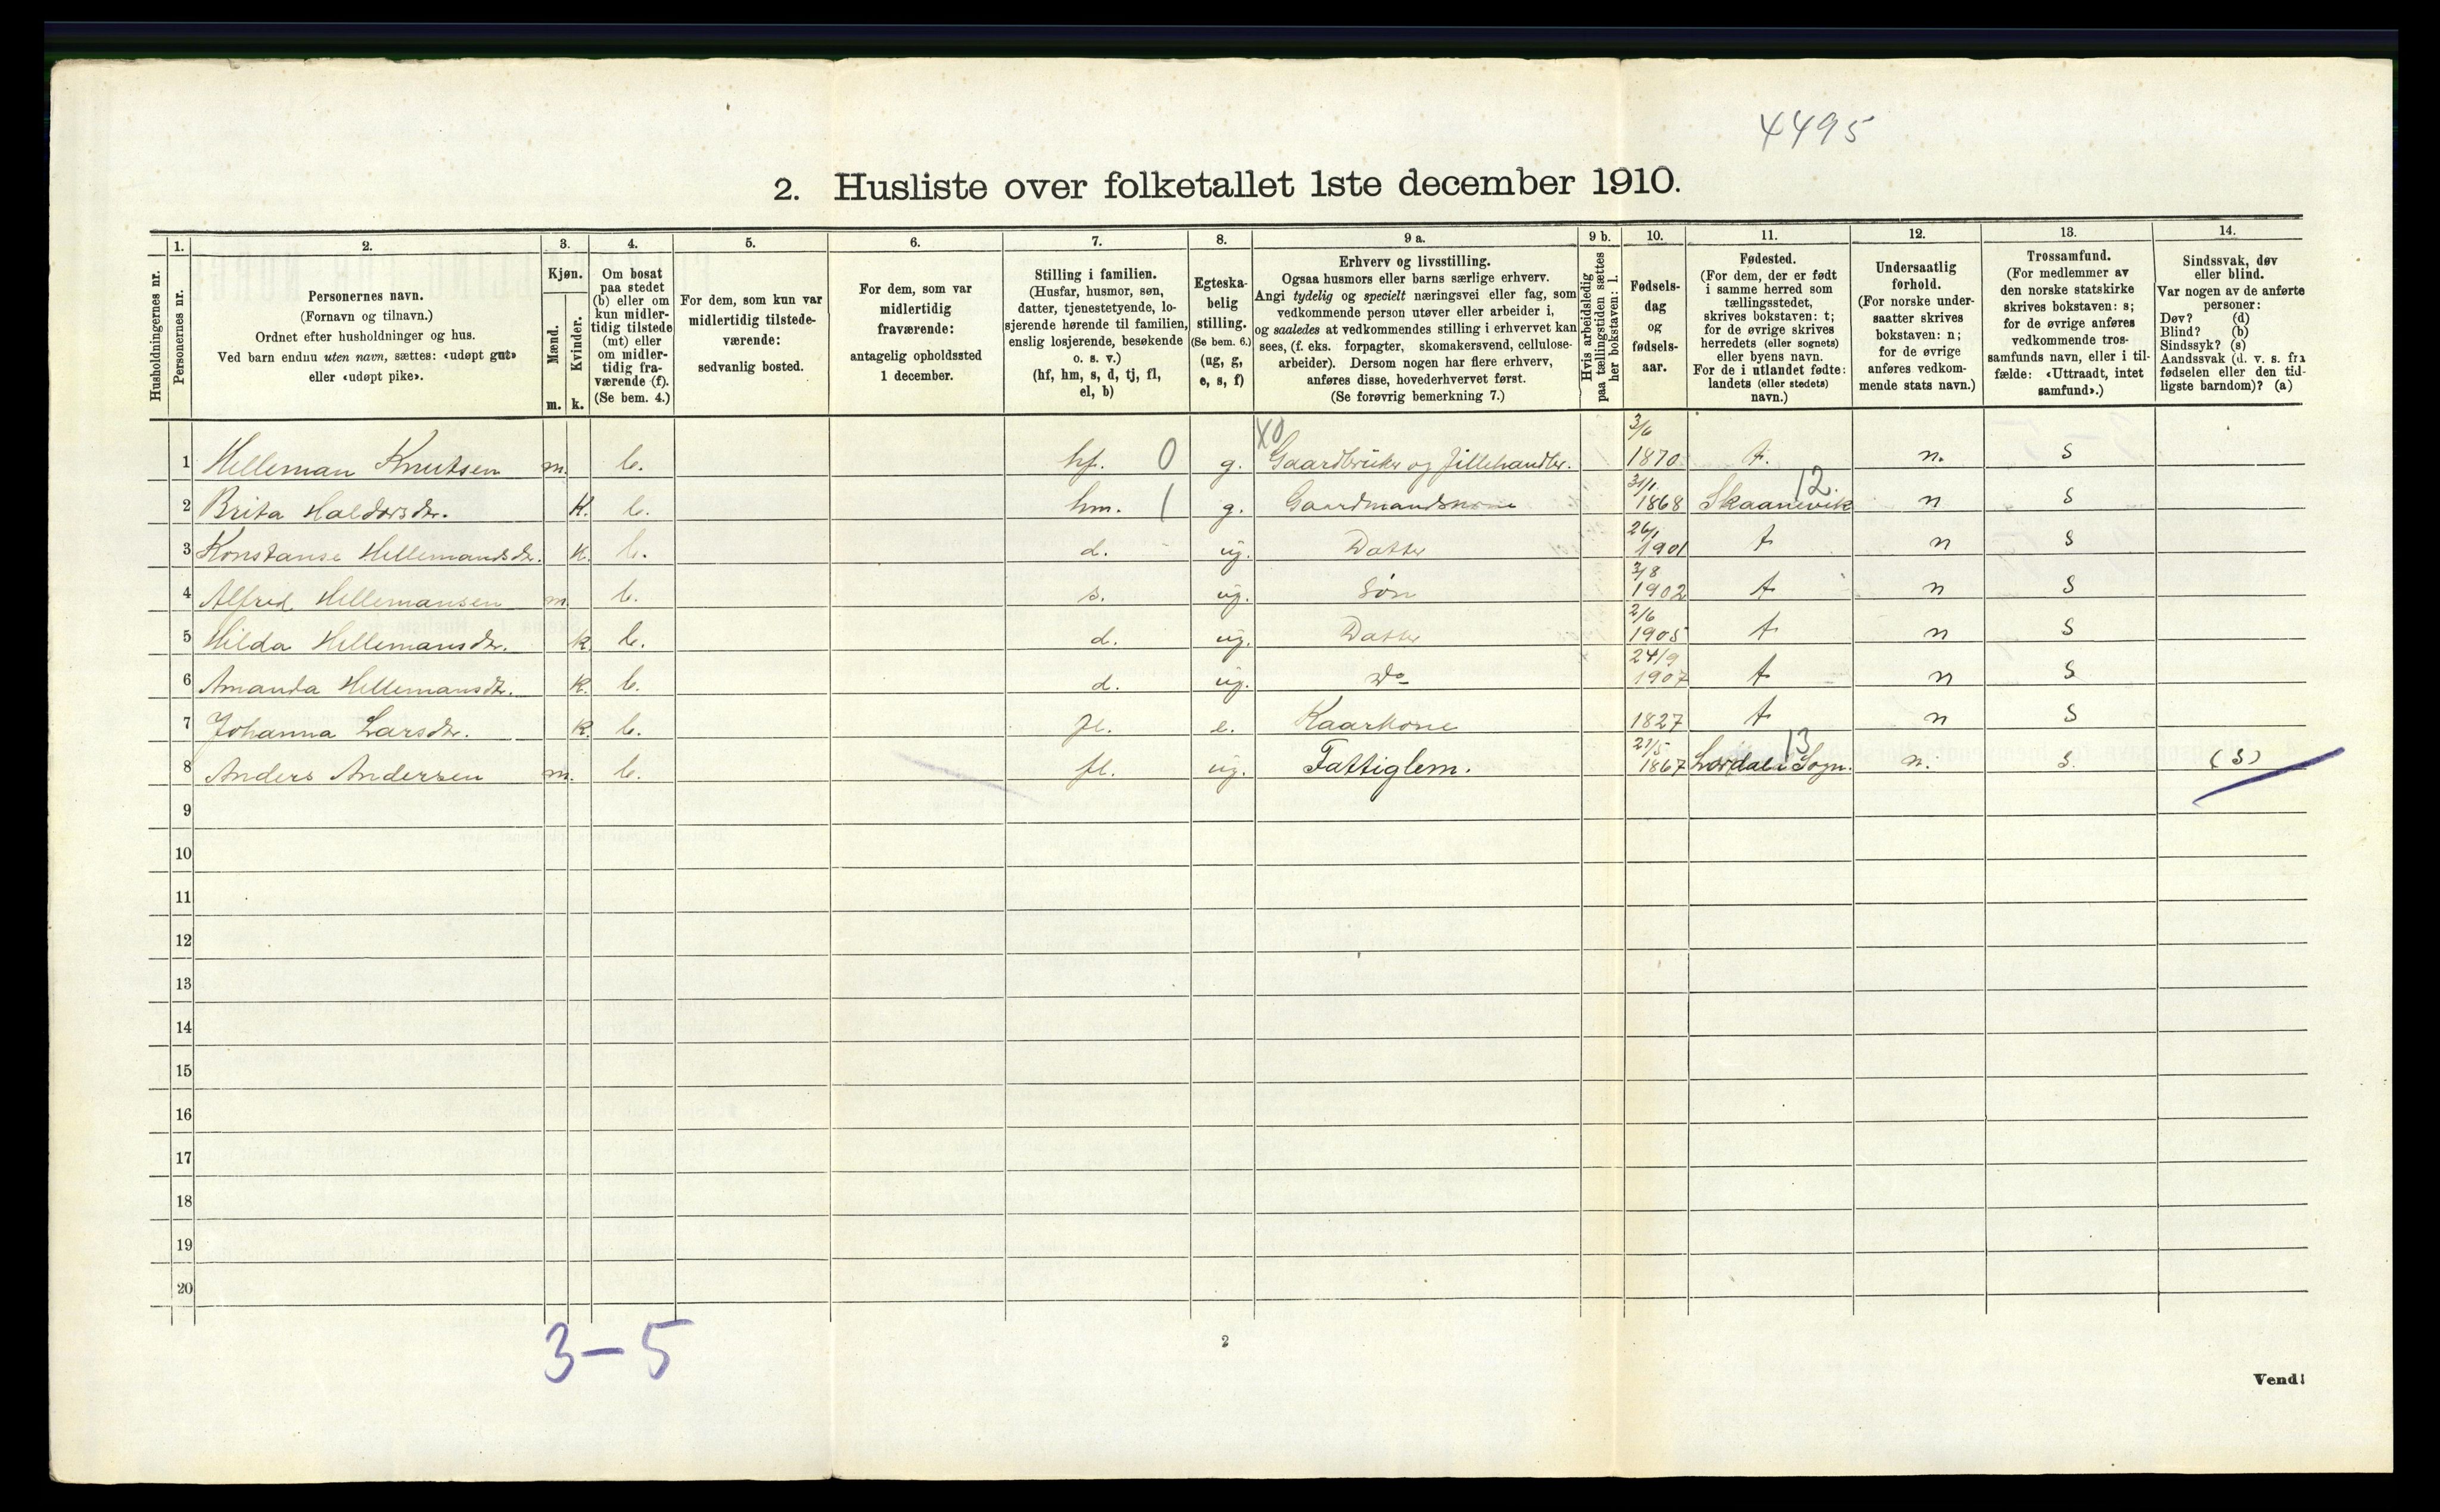 4495
2. Husliste over folketallet 1ste december 1910.
Husholdningernes nr.
1. Personernes nr.
2. Personernes navn.
(Fornavn og tilnavn.)
Ordnet efter husholdninger og hus.
Ved barn endnu uten navn, sættes: «udøpt gut»
eller «udøpt pike».
3. Kjøn.
Mænd. m.
Kvinder. k.
4. Om bosat
paa stedet
(b) eller om
kun midler-
tidig tilstede
(mt) eller
om midler-
tidig fra-
værende (f).
(Se bem. 4.)
5. For dem, som kun var
midlertidig tilstede-
værende:
sedvanlig bosted.
6. For dem, som var
midlertidig
fraværende:
antagelig opholdssted
1 december.
7. Stilling i familien.
(Husfar, husmor, søn,
datter, tjenestetyende, lo-
sjerende hørende til familien,
enslig losjerende, besøkende
o. s. v.)
(hf, hm, s, d, tj, fl,
el, b)
8. Egteska-
belig
stilling.
(Se bem. 6.)
(ug, g,
e, s, f)
9 a. Erhverv og livsstilling.
Ogsaa husmors eller barns særlige erhverv.
Angi tydelig og specielt næringsvei eller fag, som
vedkommende person utøver eller arbeider i,
og saaledes at vedkommendes stilling i erhvervet kan
sees, (f. eks. forpagter, skomakersvend, cellulose-
arbeider). Dersom nogen har flere erhverv,
anføres disse, hovederhvervet først.
(Se forøvrig bemerkning 7.)
9 b. Hvis arbeidsledig
paa tællingstiden sættes
her bokstaven: l.
10. Fødsels-
dag
og
fødsels-
aar.
11. Fødested.
(For dem, der er født
i samme herred som
tællingsstedet,
skrives bokstaven: t;
for de øvrige skrives
herredets (eller sognets)
eller byens navn.
For de i utlandet fødte:
landets (eller stedets)
navn.)
12. Undersaatlig
forhold.
(For norske under-
saatter skrives
bokstaven: n;
for de øvrige
anføres vedkom-
mende stats navn.)
13. Trossamfund.
(For medlemmer av
den norske statskirke
skrives bokstaven: s;
for de øvrige anføres
vedkommende tros-
samfunds navn, eller i til-
fælde: «Uttraadt, intet
samfund».)
14. Sindssvak, døv
eller blind.
Var nogen av de anførte
personer:
Døv? (d)
Blind? (b)
Sindssyk? (s)
Aandssvak (d. v. s. fra
fødselen eller den tid-
ligste barndom)? (a)
1 Helleman Knutsen m. b. hf. 0 g. X0 Gaardbruker og Sillehandler. 3/6 1870 t. n. s
2 Brita Haldorsdr. K. b. hm. 1 g. Gaardmandskone 31/1 1868 Skaanevik 12. n s
3 Konstanse Hellemandsdr. K. b. d. ug. Datter 26/1 1901 t n s
4 Alfred Hellemansen m b. s. ug. Søn 3/8 1902 t n s
5 Hilda Hellemansdr. k. b. d. ug. Datter 2/6 1905 t n s
6 Amanda Hellemansdr. k. b. d. ug. Do 24/9 1907 t n s
7 Johanna Larsdr. k. b. fl. e. Kaarkone 1827 t n s
8 Anders Andersen m. b. fl. ug. Fattiglem. 21/5 1867 Lærdal i Sogn. 13 n. s. (s)
9
10
11
12
13
14
15
16
17
18
19
20
3-5
2
Vend!